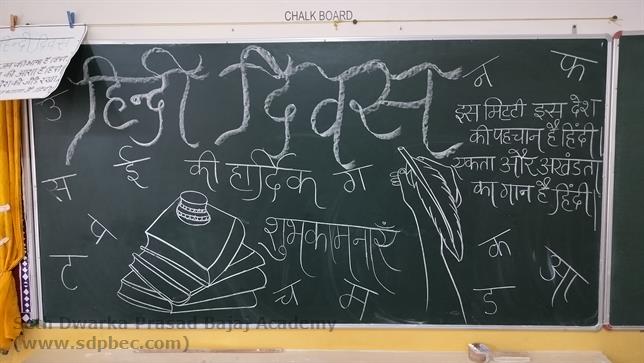 CHALK BOARD
हिन्दी दिवस
की हार्दिक
शुभकामनाएँ
इस मिटटी इस देश
की पहचान है हिंदी।
एकता और अखंडता
का गान है हिंदी।
उ
स
ई
प
ट
ग
च
म
न
फ
क
ड
आ
हिन्दी दिवस
Seth Dwarka Prasad Bajaj Academy
(www.sdpbec.com)